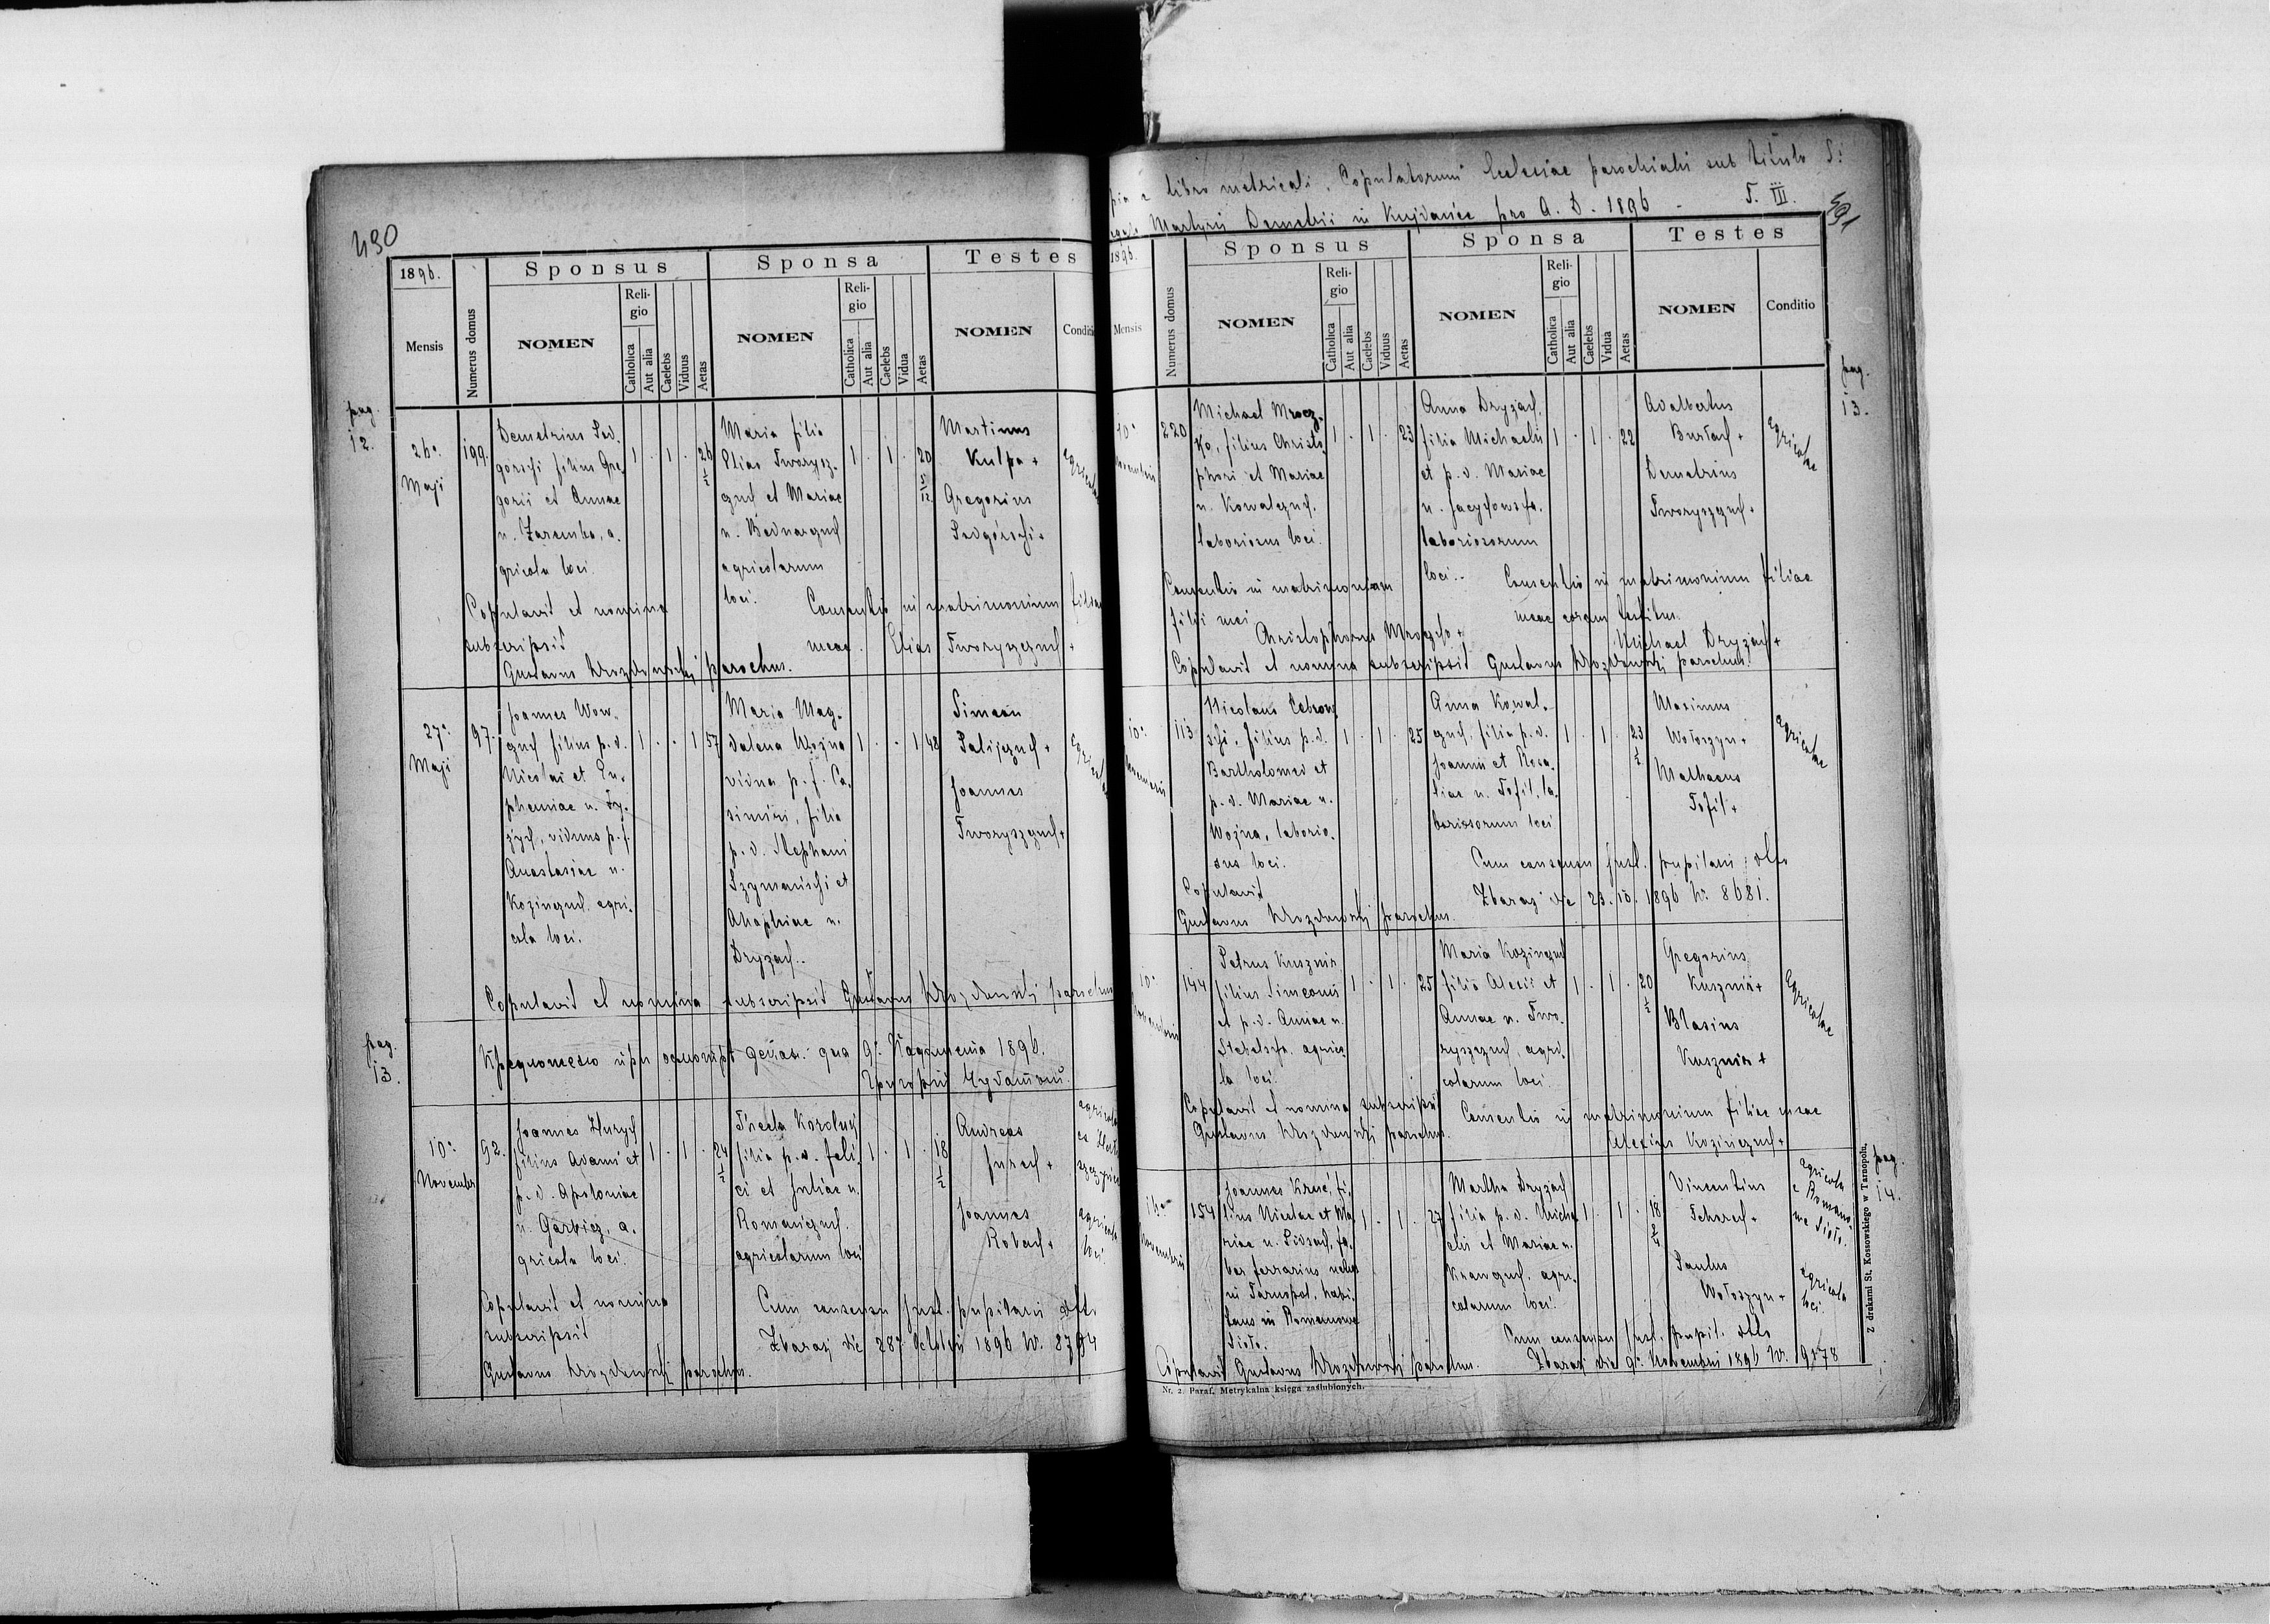 430
1896.
Sponsus
Sponsa
Testes
Mensis
Numerus domus
NOMEN
Religio
Catholica
Aut alia
Caelebs
Viduus
Aetas
NOMEN
Religio
Catholica
Aut alia
Caelebs
Vidua
Aetas
NOMEN
pag.
12.
26°
Maji
199.
Demetrius Sad-
górski filius Gre-
gorii et Annae
n. Zaremba, a-
gricola loci.
1 . 1 . 26 1/2
Maria filia
Eliae Tworysz-
czuk et Mariae
n. Bednarczuk
agricolarum
loci.
1 . 1 . 20
Martinus
Kulpa +
Gregorius
Sadgórski +
Agricolae
Copulavit et nomina
subscripsit
Gustavus parochus.
Consentio in matrimonium filiae
meae Elias Tworyszczuk +
27°
Maji
97.
Joannes Wow-
czuk filius p. d.
Nicolai et Eu-
phemiae n.
viduus p. f.
Anastasiae n.
Kozinczuk agri-
cola loci.
1 . . 1 57
Maria Mag-
dalena Woźna
vidua p. f. Ca-
simiri, filia
p. d. Stephani
Szymański et
Agaphiae n.
Dryzak.
1 . . 1 48
Simeon
Palijczuk +
Joannes
Tworyszczuk +
Agricolae
Copulavit et nomina subscripsit Gustavus parochus
pag.
13.
1896.
10°
Novembr
92.
Joannes Huryk
filius Adami et
p. d. Apoloniae
n. Garbicz, a-
gricola loci.
1 . 1 . 24 1/2
Thecla Koroluk
filia p. d. Feli-
ci et Juliae n.
Romańczuk
agricolarum loci
1 . 1 . 18 1/2
Andreas
Jurak +
Joannes
Robak +
agricola
loci.
Copulavit et nomina
subscripsit
Gustavus parochus.
Cum consensu Jud. pupilari ddto
Zbaraż die 28° Octobri 1896 Nr.
libro metricali Copulatorum Ecclesiae parochialis sub titulo S.
Martyris Demetrii in Kujdańce pro A. D. 1896 - T. III.
1896.
Sponsus
Sponsa
Testes
Mensis
Numerus domus
NOMEN
Religio
Catholica
Aut alia
Caelebs
Viduus
Aetas
NOMEN
Religio
Catholica
Aut alia
Caelebs
Vidua
Aetas
NOMEN
Conditio
pag.
13.
10°
220
Michael Mrocz-
ko, filius Christo-
phori et Mariae
n. Kowalczuk,
laboriosus loci.
1 . 1 . 23
Anna Dryzak,
filia Michaelis
et p. d. Mariae
n. Jacykowska,
laboriosorum
loci.
1 . 1 . 22
Adalbertus
Burłak +
Demetrius
Tworyszczuk +
Agricolae
Consentio in matrimonium
filii mei
Christophorus Mroczko +
Consentio in matrimonium filiae
meae coram testibus.
Michael Dryzak +
Copulavit et nomina subscripsit Gustavus parochus.
10°
113
Nicolaus Cebrow-
ski, filius p. d.
Bartholomei et
p. d. Mariae n.
Woźna, laborio-
sus loci.
1 . 1 . 25
Anna Kowal-
czuk, filia p. d.
Joannis et Rosa-
liae n. Tofil, la-
boriosorum loci
1 . 1 . 23 1/2
Maximus
Wołoszyn +
Mathaeus
Tofil +
Agricolae
Copulavit
Gustavus parochus.
Cum consensu Jud. pupilari ddto
Zbaraż die 23. 10. 1896 Nr. 8681.
10°
144
Petrus Kusznir
filius Simeonis
et p. d. Annae n.
Stebelska, agrico-
la loci.
1 . 1 . 25
Maria Kozinczuk
filia Alexii et
Annae n. Two-
ryszczuk, agri-
colarum loci.
1 . 1 . 20 1/2
Gregorius
Kusznir +
Blasius
Kusznir +
Agricolae
Copulavit et nomina subscripsit
Gustavus parochus.
Consentio in matrimonium filiae meae
Alexius Kozinczuk +
pag.
14.
16°
154
Joannes Kruć, fi-
lius Nicolae et Ma-
riae n. Pidsak, fa-
ber ferrarius natus
in Tarnopol, habi-
tans in Romanowe
Sioło.
1 . 1 . 27
Martha Dryzak
filia p. d. Micha-
elis et Mariae n.
Krawczuk, agri-
colarum loci.
1 . 1 . 18
Vincentius
Tchorek +
Paulus
Wołoszyn +
agricola
e Romano-
we Sioło.
agricola
loci.
Copulavit Gustavus parochus.
Cum consensu Jud. pupil. ddto
Zbaraż die 9° Novembri 1896 Nr. 9178
Nr. 2. Paraf. Metrykalna księga zaślubionych.
Z drukarni St. Kossowskiego w Tarnopolu.